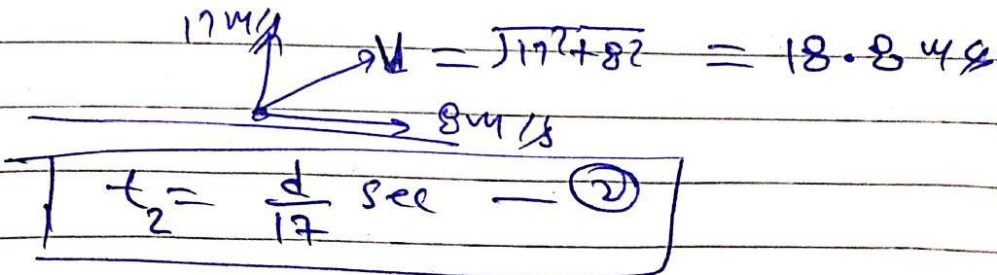 17 m/s
V = √17²+8² = 18.8 m/s
8 m/s
t₂ = d/17 sec — ②